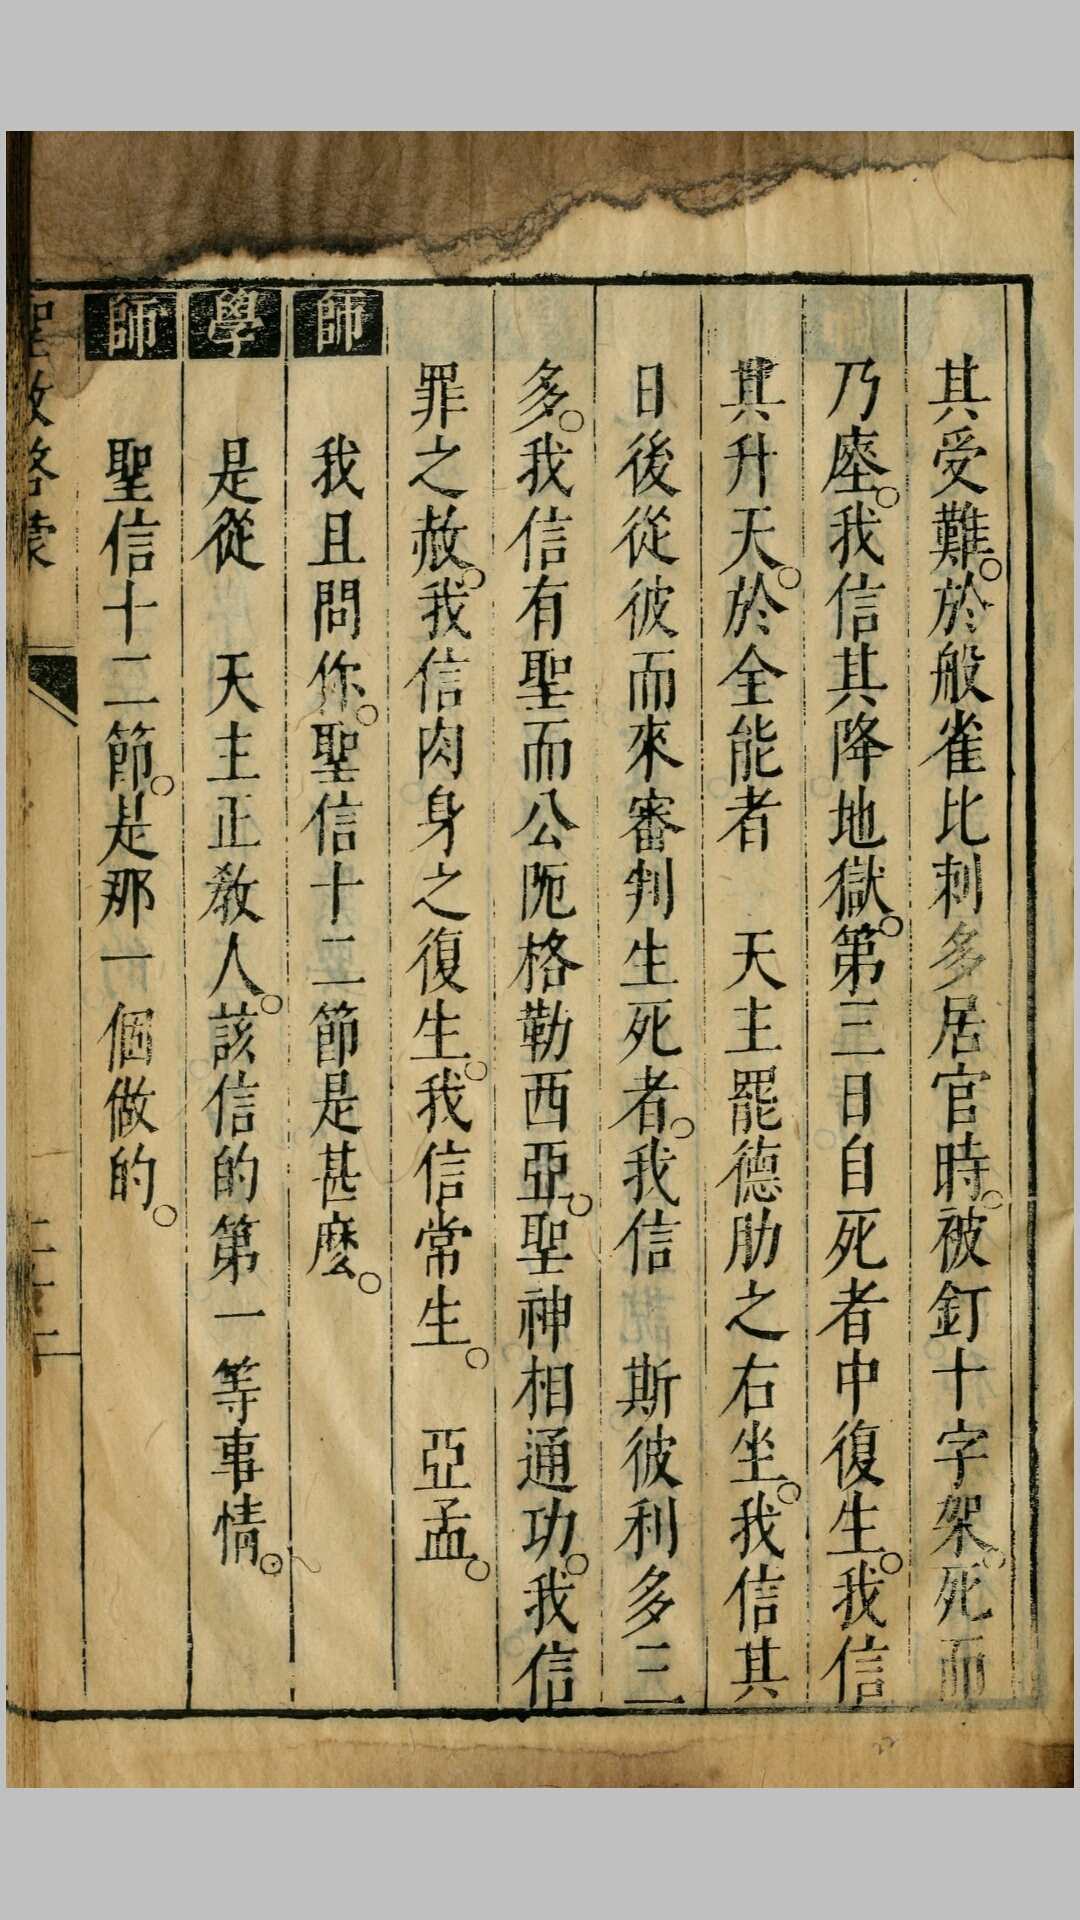 其受難。於般雀比剌多居官時。被釘十字架。死而
乃瘞。我信其降地獄。第三日自死者中復生。我信
其升天。於全能者　天主罷德肋之右坐。我信其
日後從彼而來審判生死者。我信　斯彼利多三
多。我信有聖而公阨格勒西亞。聖神相通功。我信
罪之赦。我信肉身之復生。我信常生。　亞孟。
師　我且問你。聖信十二節是甚麼。
學　是從　天主正敎人。該信的第一等事情。
師　聖信十二節。是那一個做的。
聖敎啓蒙　二十二
22